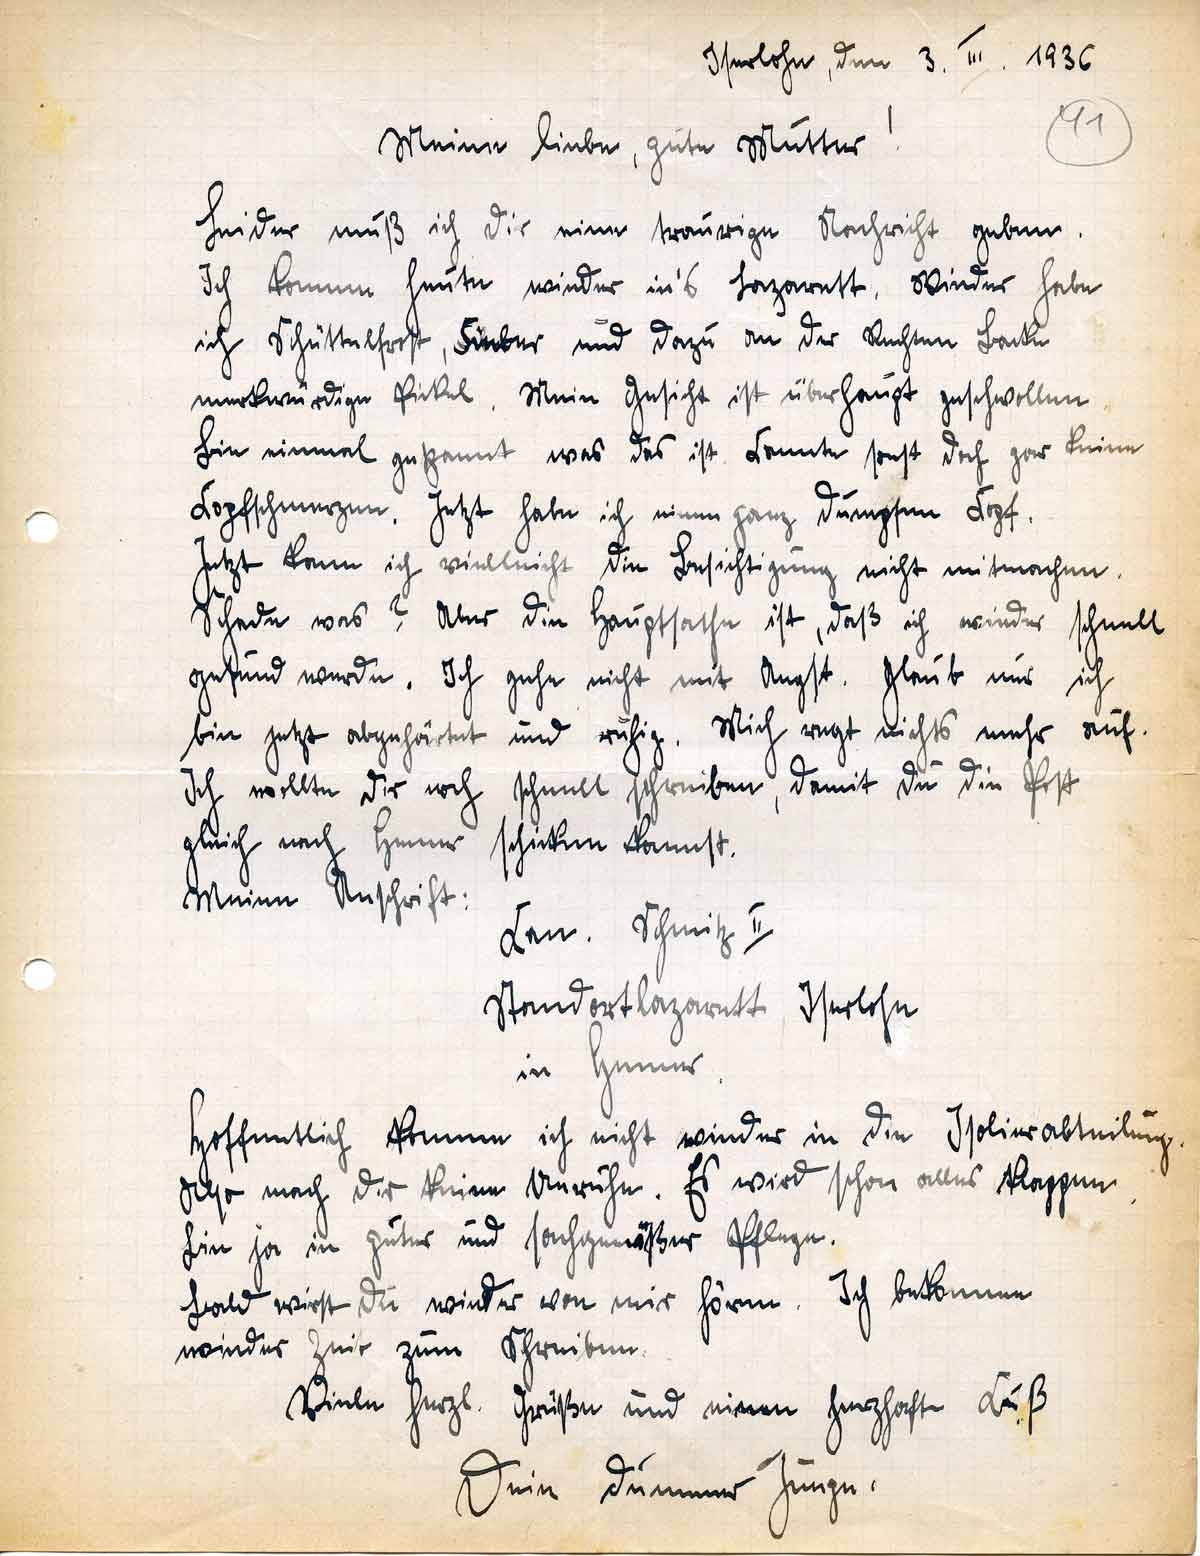 Iserlohn, den 3. III. 1936
41
Meine liebe, gute Mutter!
Leider muß ich Dir eine traurige Nachricht geben.
Ich komme heute wieder in's Lazarett. Wieder habe
ich Schüttelfrost, Fieber und dazu an der Rechten Backe
merkwürdige Pickel. Mein Gesicht ist überhaupt geschwollen.
Bin einmal gespannt was das ist. Kannte sonst doch gar keine
Kopfschmerzen. Jetzt habe ich einen ganz dumpfen Kopf.
Jetzt kann ich vielleicht die Besichtigung nicht mitmachen.
Schade was? Aber die Hauptsache ist, daß ich wieder schnell
gesund werde. Ich gehe nicht mit Angst. Glaub nur ich
bin jetzt abgehärtet und ruhig. Mich regt nichts mehr auf.
Ich wollte Dir noch schnell schreiben, damit Du die Post
gleich nach Hemer schicken kannst.
Meine Anschrift:
Kan. Schmitz II
Standortlazarett Iserlohn
in Hemer.
Hoffentlich komme ich nicht wieder in die Isolierabteilung.
Also mach Dir keine Unruhe. Es wird schon alles klappen.
Bin ja in guter und sachgemäßer Pflege.
Bald wirst Du wieder von mir hören. Ich bekomme
wieder Zeit zum Schreiben.
Viele herzl. Grüße und einen herzhafte Kuß
Dein dummer Junge.